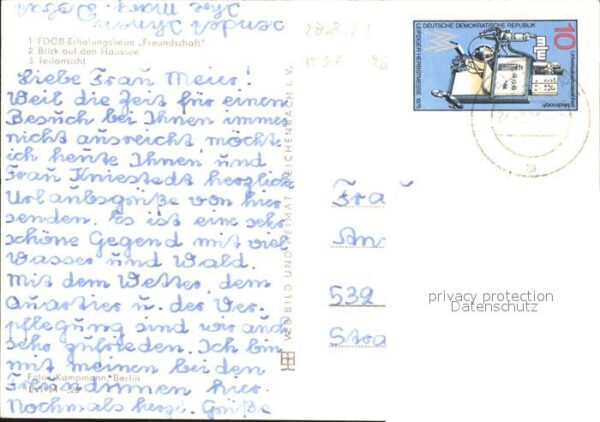 1 FDGB-Erholungsheim „Freundschaft"
2 Blick auf den Haussee
3 Teilansicht
Liebe Frau Meier!
Weil die Zeit für einen
Besuch bei Ihnen immer
nicht ausreicht, möcht
ich heute Ihnen und
Frau Kniestedt herzlich
Urlaubsgrüße von hier
senden. Es ist eine sehr
schöne Gegend mit viel
Wasser und Wald.
Mit dem Wetter, dem
Quartier u. der Ver-
pflegung sind wir auch
sehr zufrieden. Ich bin
mit meinen beiden
Freundinnen hier.
Nochmals herzl. Grüße
sendet Ihnen
Ihre
Foto: Kampmann, Berlin
VEB BILD UND HEIMAT REICHENBACH i. V.
DEUTSCHE DEMOKRATISCHE REPUBLIK
LEIPZIGER HERBSTMESSE 1975
10
Frau
An
532
Stra
privacy protection
Datenschutz